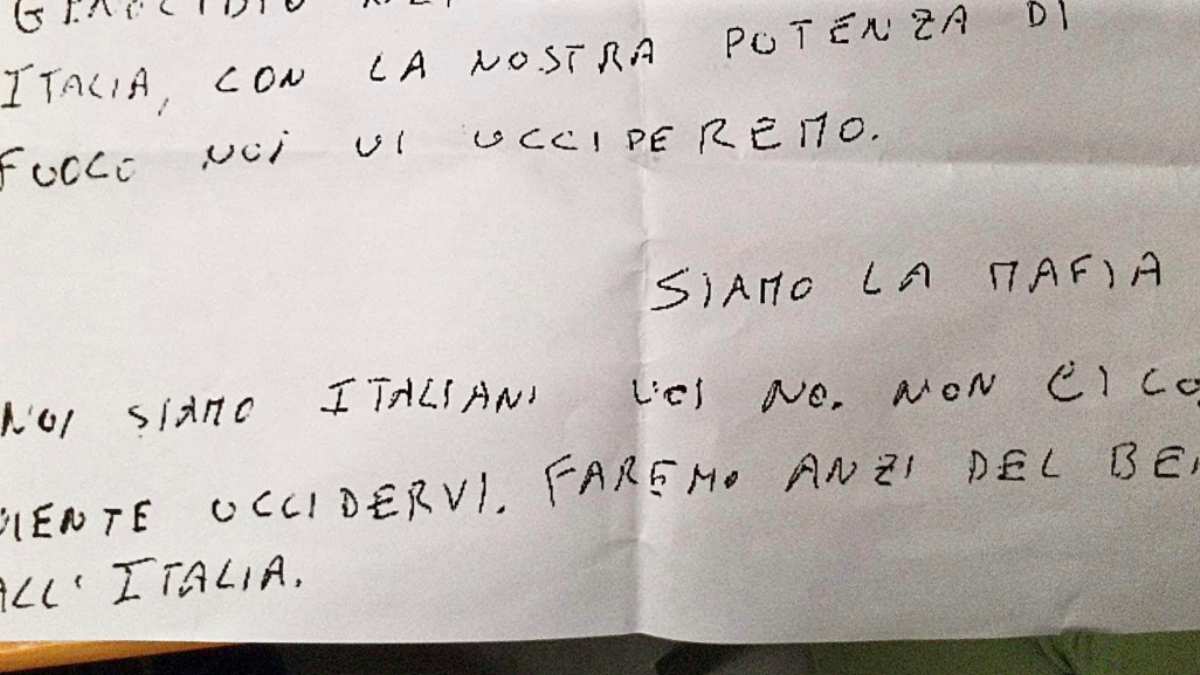 GENOCIDIO
ITALIA, CON LA NOSTRA POTENZA DI
FUOCO NOI VI UCCIDEREMO.
SIAMO LA MAFIA
NOI SIAMO ITALIANI VOI NO. NON CI CO
NIENTE UCCIDERVI. FAREMO ANZI DEL BE
ALL'ITALIA.